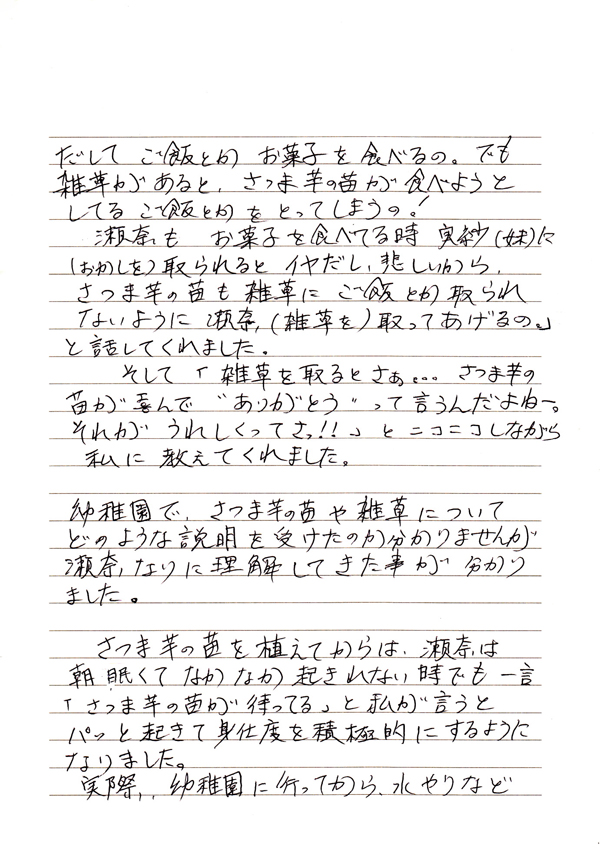 だして ご飯とか お菓子を食べるの。でも
雑草があると、さつま芋の苗が食べようと
してる ご飯とかをとってしまうの!
瀬奈も お菓子を食べてる時 実紗(妹)に
(おかしを)取られるとイヤだし、悲しいから、
さつま芋の苗も雑草にご飯とか取られ
ないように瀬奈、(雑草を)取ってあげるの。」
と話してくれました。
そして「雑草を取るとさぁ... さつま芋の
苗が喜んで〝ありがとう〟って言うんだよねー。
それが うれしくってさっ!!」とニコニコしながら
私に教えてくれました。
幼稚園で、さつま芋の苗や雑草について
どのような説明を受けたのか分かりませんが
瀬奈なりに理解してきた事が分かり
ました。
さつま芋の苗を植えてからは、瀬奈は
朝眠くてなかなか起きれない時でも一言
「さつま芋の苗が待ってる」と私が言うと
パッと起きて身仕度を積極的にするように
なりました。
実際、幼稚園に行ってから、水やりなど